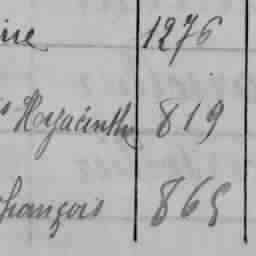 1276
Hyacinthe 819
françois 865